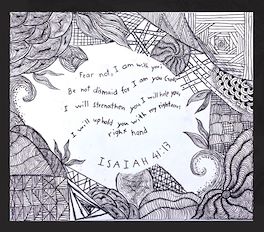 Fear not, I am with you.
Be not dismaid for I am you God.
I will strengthen you, I will help you,
I will uphold you with my righteous
right hand
ISAIAH 41:13